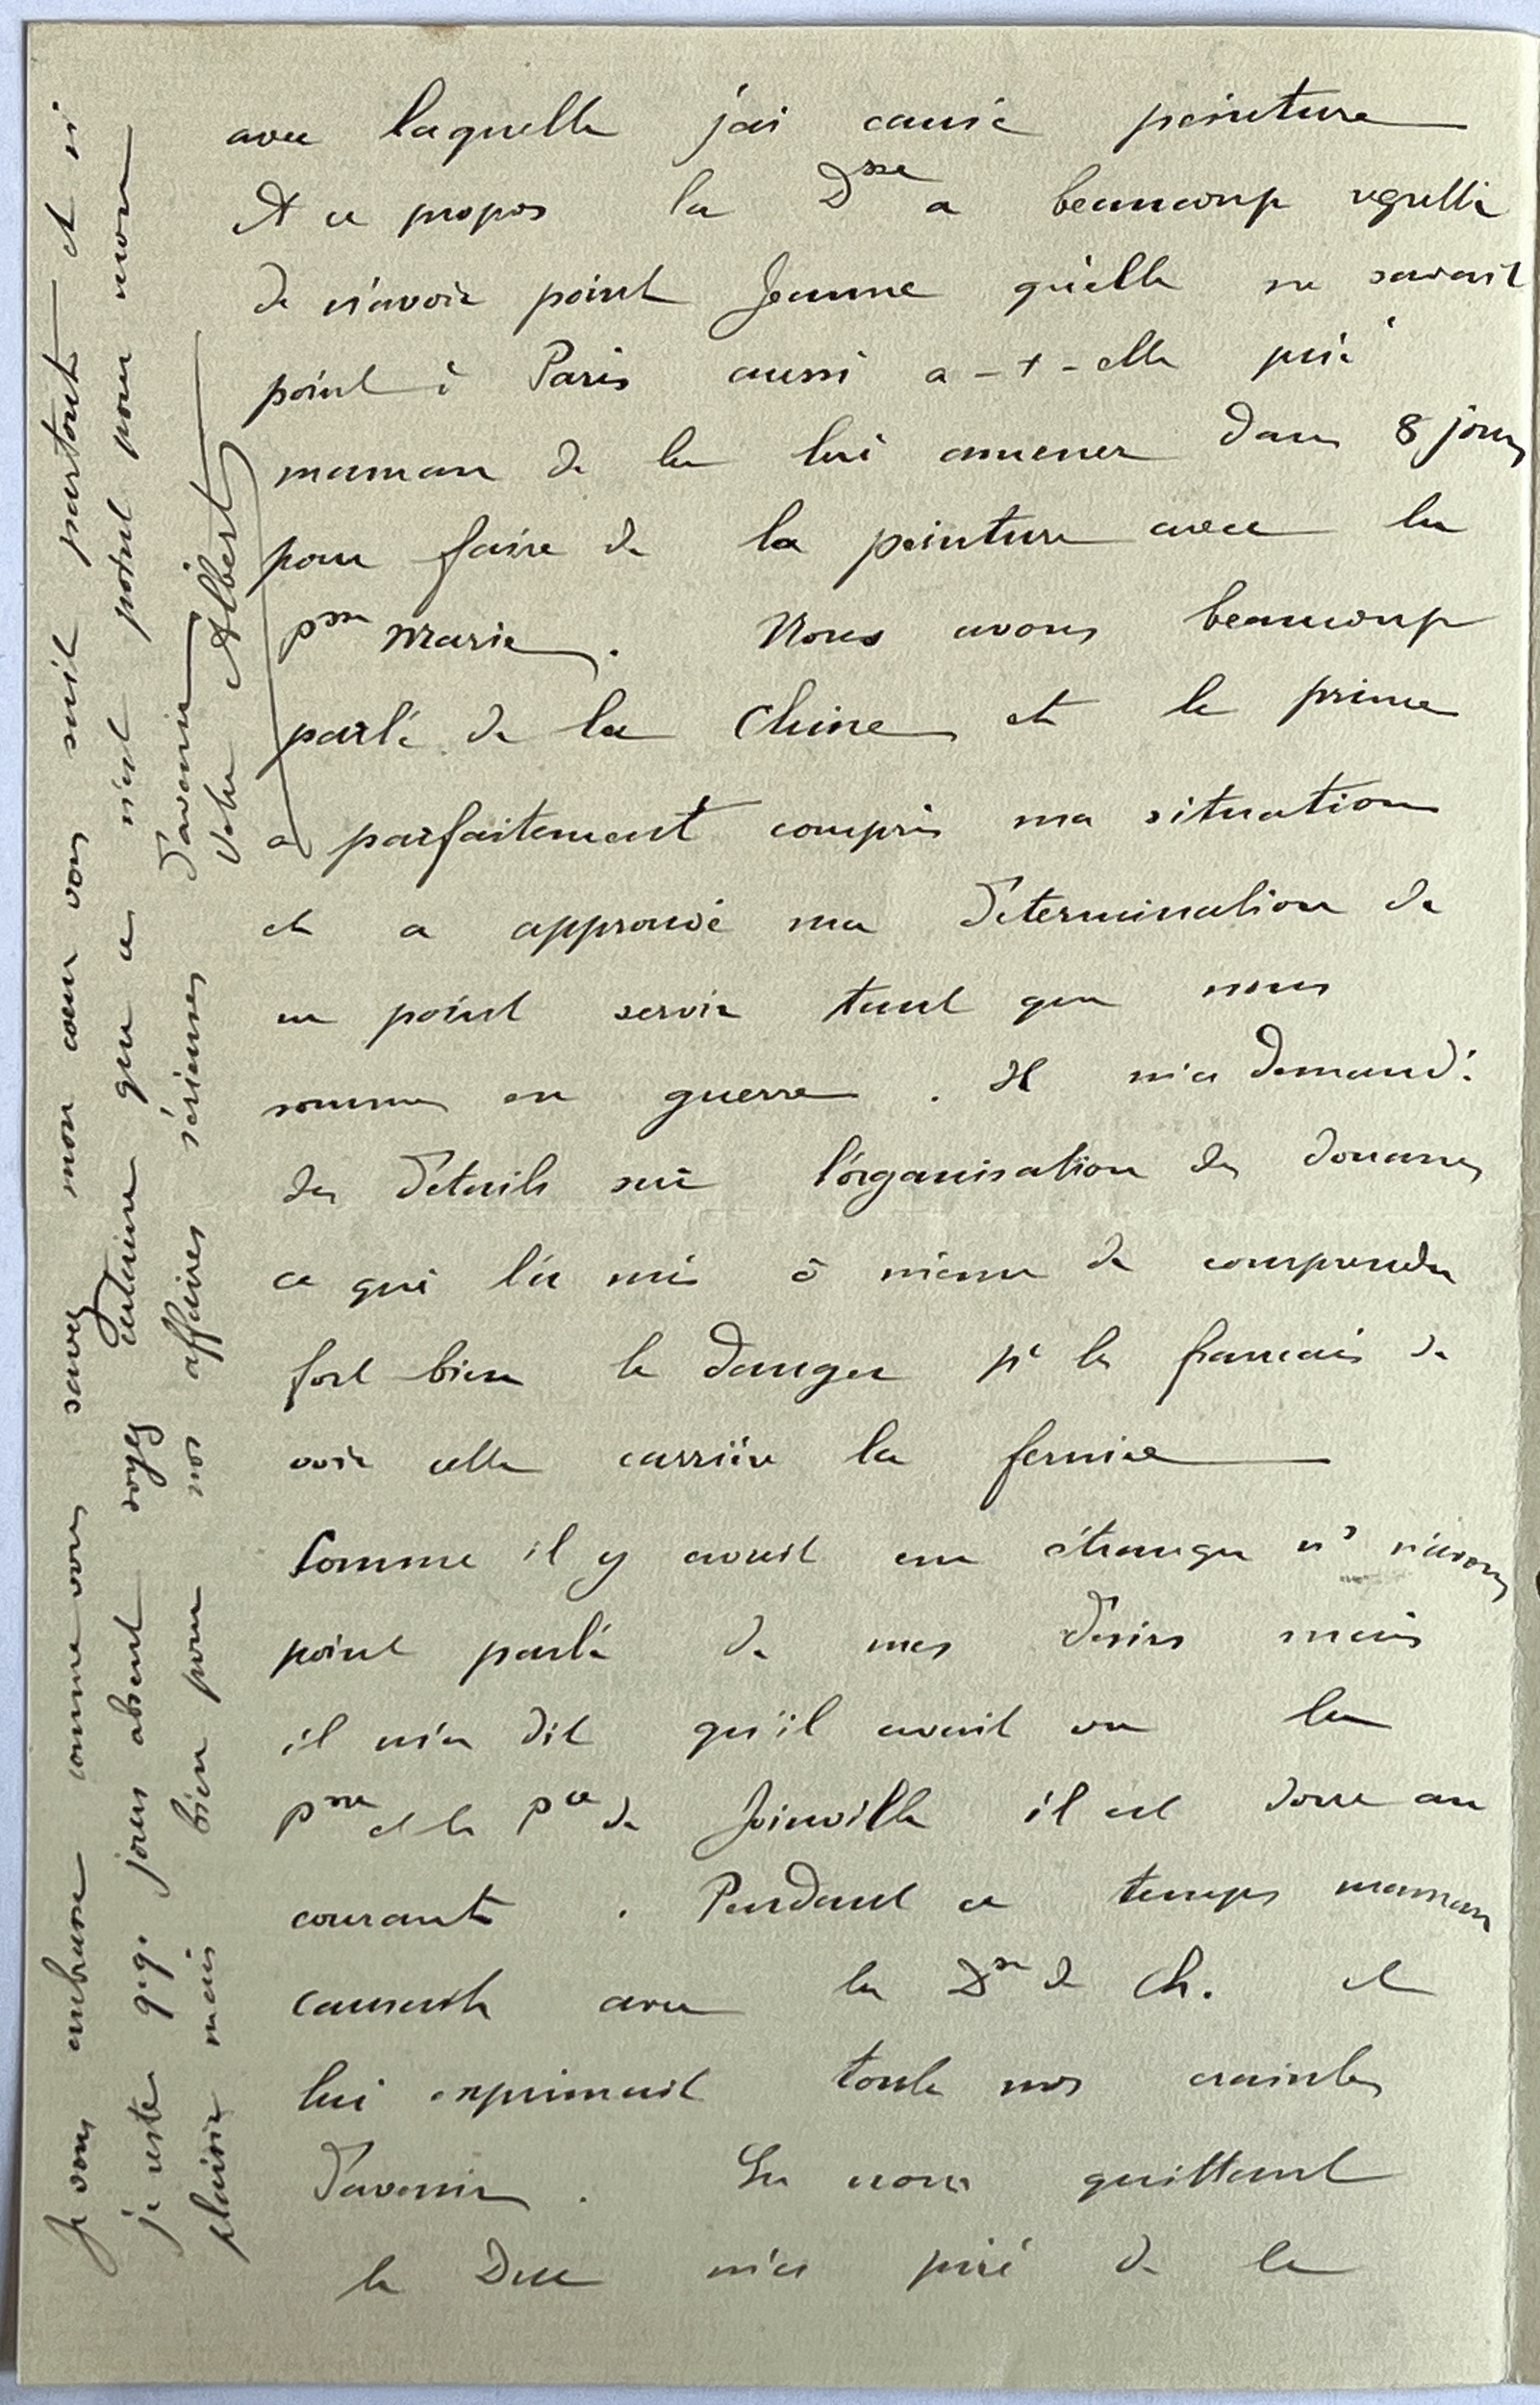 avec laquelle j'ai causé peinture
A ce propos la Dsse a beaucoup regretté
de n'avoir point Jeanne qu'elle ne savait
point à Paris aussi a-t-elle prié
maman de la lui amener dans 8 jours
pour faire de la peinture avec la
Psse Marie. Nous avons beaucoup
parlé de la Chine et le prince
a parfaitement compris ma situation
et a approuvé ma détermination de
ne point servir tant que nous
sommes en guerre. Il m'a demandé
des détails sur l'organisation des douanes
ce qui l'a mis à même de comprendre
fort bien le danger pr les français de
voir cette carrière la fermée
Comme il y avait un étranger ns n'avons
point parlé de mes désirs mais
il m'a dit qu'il avait vu la
Psse et le Pce de Joinville il est donc au
courant. Pendant ce temps maman
causait avec la Dsse de Ch. et
lui exprimait toute nos craintes
d'avenir. En nous quittant
le Duc m'a prié de le
Je vous embrasse comme vous savez mon cœur vous suit partout et si
je reste qq. jours absent soyez certaine que ce n'est point pour mon
plaisir mais bien pour nos affaires sérieuses d'avenir
Votre Albert